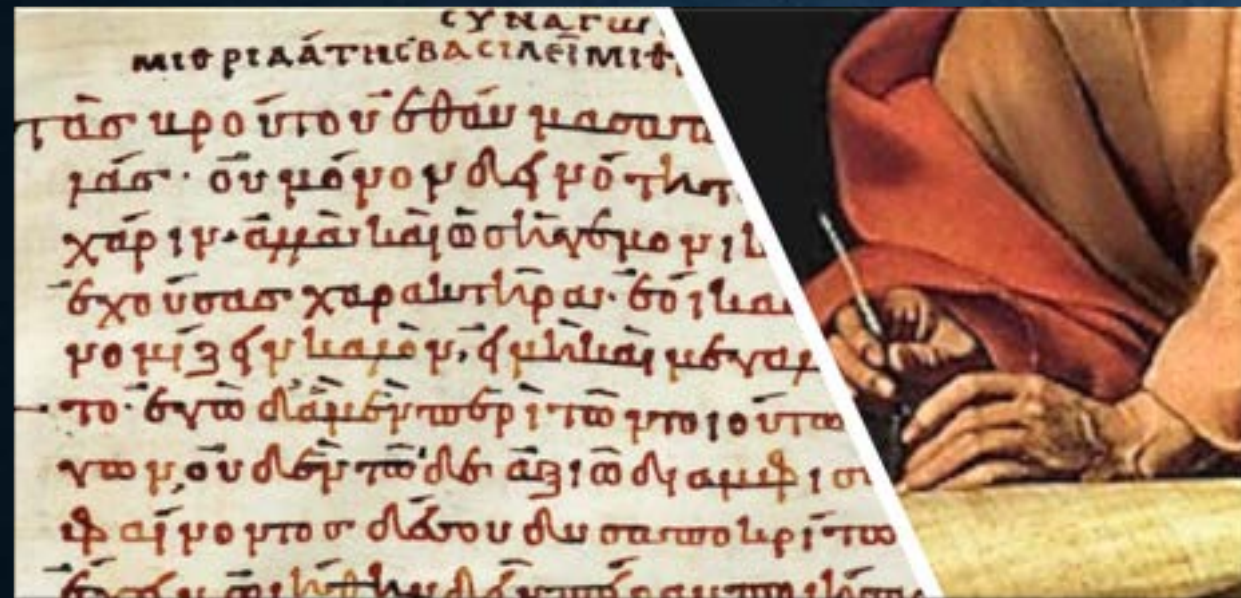 СΥΝΑΓΩ
ΜΙΘΡΙΔΆΤΗС ΒΑСΙΛΕῖ ΜΙΘ
τὰς βρούτου ἐθαύμασα π
λάς· οὐ μόνον δεινότητ
χάριν· ἀλλὰ καὶ ὡς ἡγεμονικ
ἐχούσας χαρακτῆρας· ἐοίκα
νομίζειν καλὸν, εἰ μὴ καὶ μεγαλ
το· ἐγὼ δ' ἃ μὲν περὶ τῶν τοιούτω
γων, οὐδὲν τῶδε ἀξιῶ διαμφισ
φαίνοντος δέ σου δυσαποκρίτω